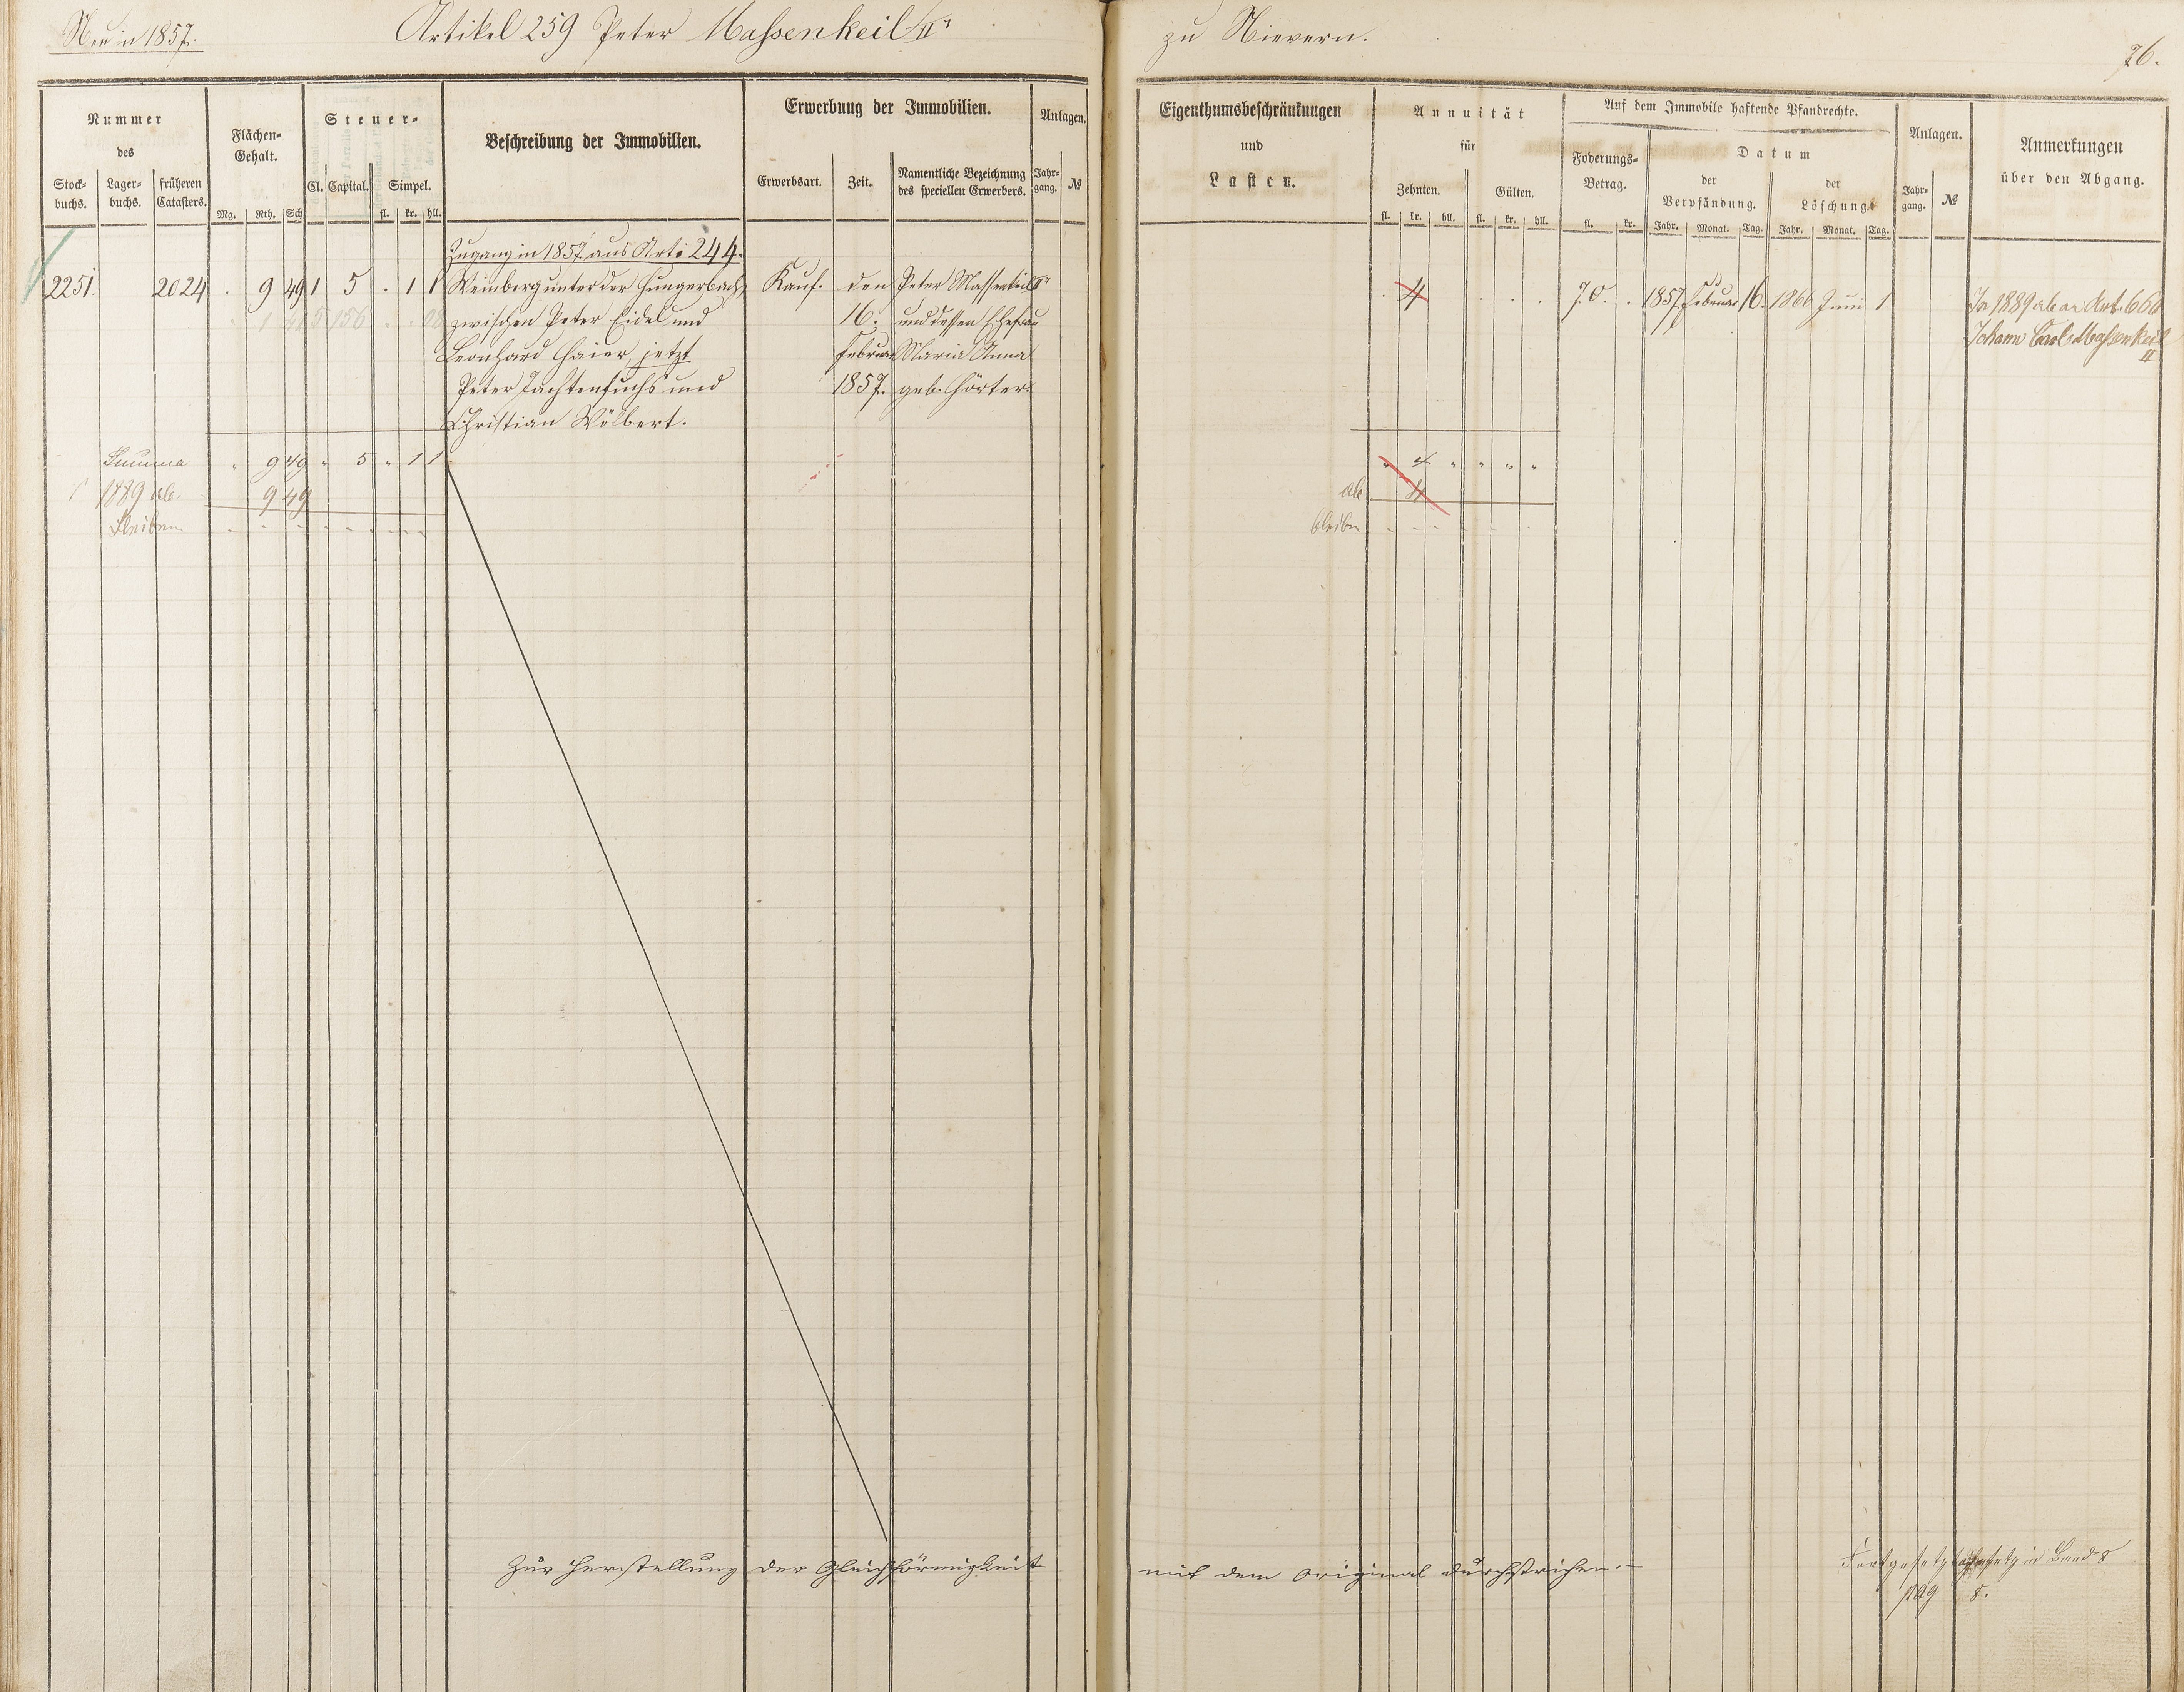 Neu in 1857.
Artikel 259 Peter Massenkeil IIr
zu Nievern.
76.
Nummer
des
Stock-
buchs.
Lager-
buchs.
früheren
Catasters.
Flächen-
Gehalt.
Mg. Rth. Sch.
Steuer-
Cl. Capital. Simpel.
fl. kr. hll.
Beschreibung der Immobilien.
Erwerbung der Immobilien.
Erwerbsart. Zeit.
Namentliche Bezeichnung
des speciellen Erwerbers.
Anlagen.
Jahr-
gang. №
Eigenthumsbeschränkungen
und
Lasten.
Annuität
für
Zehnten. Gülten.
fl. kr. hll. fl. kr. hll.
Auf dem Immobile haftende Pfandrechte.
Foderungs-
Betrag.
fl. kr.
Datum
der
Verpfändung.
Jahr. Monat. Tag.
der
Löschung.
Jahr. Monat. Tag.
Anlagen.
Jahr-
gang. №
Anmerkungen
über den Abgang.
Zugang in 1857 aus Arti 244.
2251. 2024 . 9 49 1 5 . 1 1 Weinberg unter der Hungerbach, Kauf. den Peter Massenkeil IIr . 4 . . . 70. . 1857 Februar 16. 1866 Juni 1. In 1889 ab an Art. 660
zwischen Peter Eidel und 16. und dessen Ehefrau Johann Carl Massenkeil
II
Leonhard Haier, jetzt Februar Maria Anna
Peter Tachtenfuchs und 1857. geb. Hörter.
Christian Wölbert.
Summa " 9 49 " 5 " 1 1 " 4 " " " "
1889 ab. 9 49 ab 4
Bleiben bleiben
Zur Herstellung der Gleichförmigkeit mit dem Original durchstrichen.-
Fortgesetzt in Band 8
pag 8.